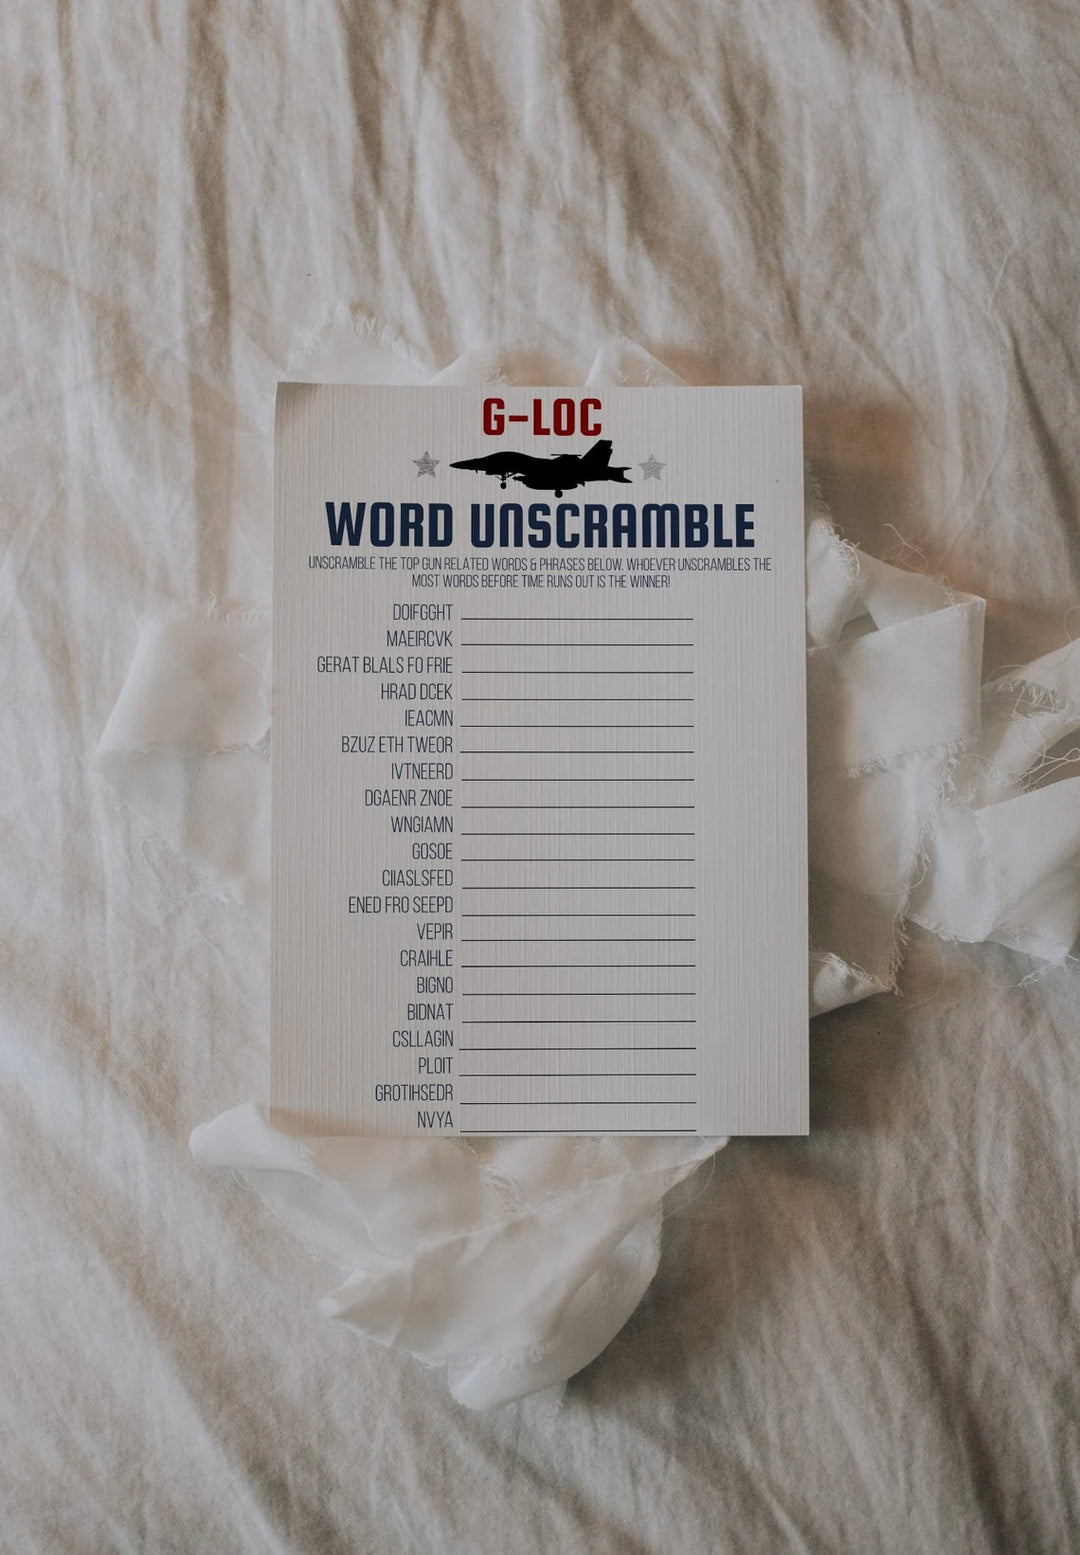 G-LOC
WORD UNSCRAMBLE
UNSCRAMBLE THE TOP GUN RELATED WORDS & PHRASES BELOW. WHOEVER UNSCRAMBLES THE
MOST WORDS BEFORE TIME RUNS OUT IS THE WINNER!
DOIFGGHT
MAEIRCVK
GERAT BLALS FO FRIE
HRAD DCEK
IEACMN
BZUZ ETH TWEOR
IVTNEERD
DGAENR ZNOE
WNGIAMN
GOSOE
CIIASLSFED
ENED FRO SEEPD
VEPIR
CRAIHLE
BIGNO
BIDNAT
CSLLAGIN
PLOIT
GROTIHSEDR
NVYA